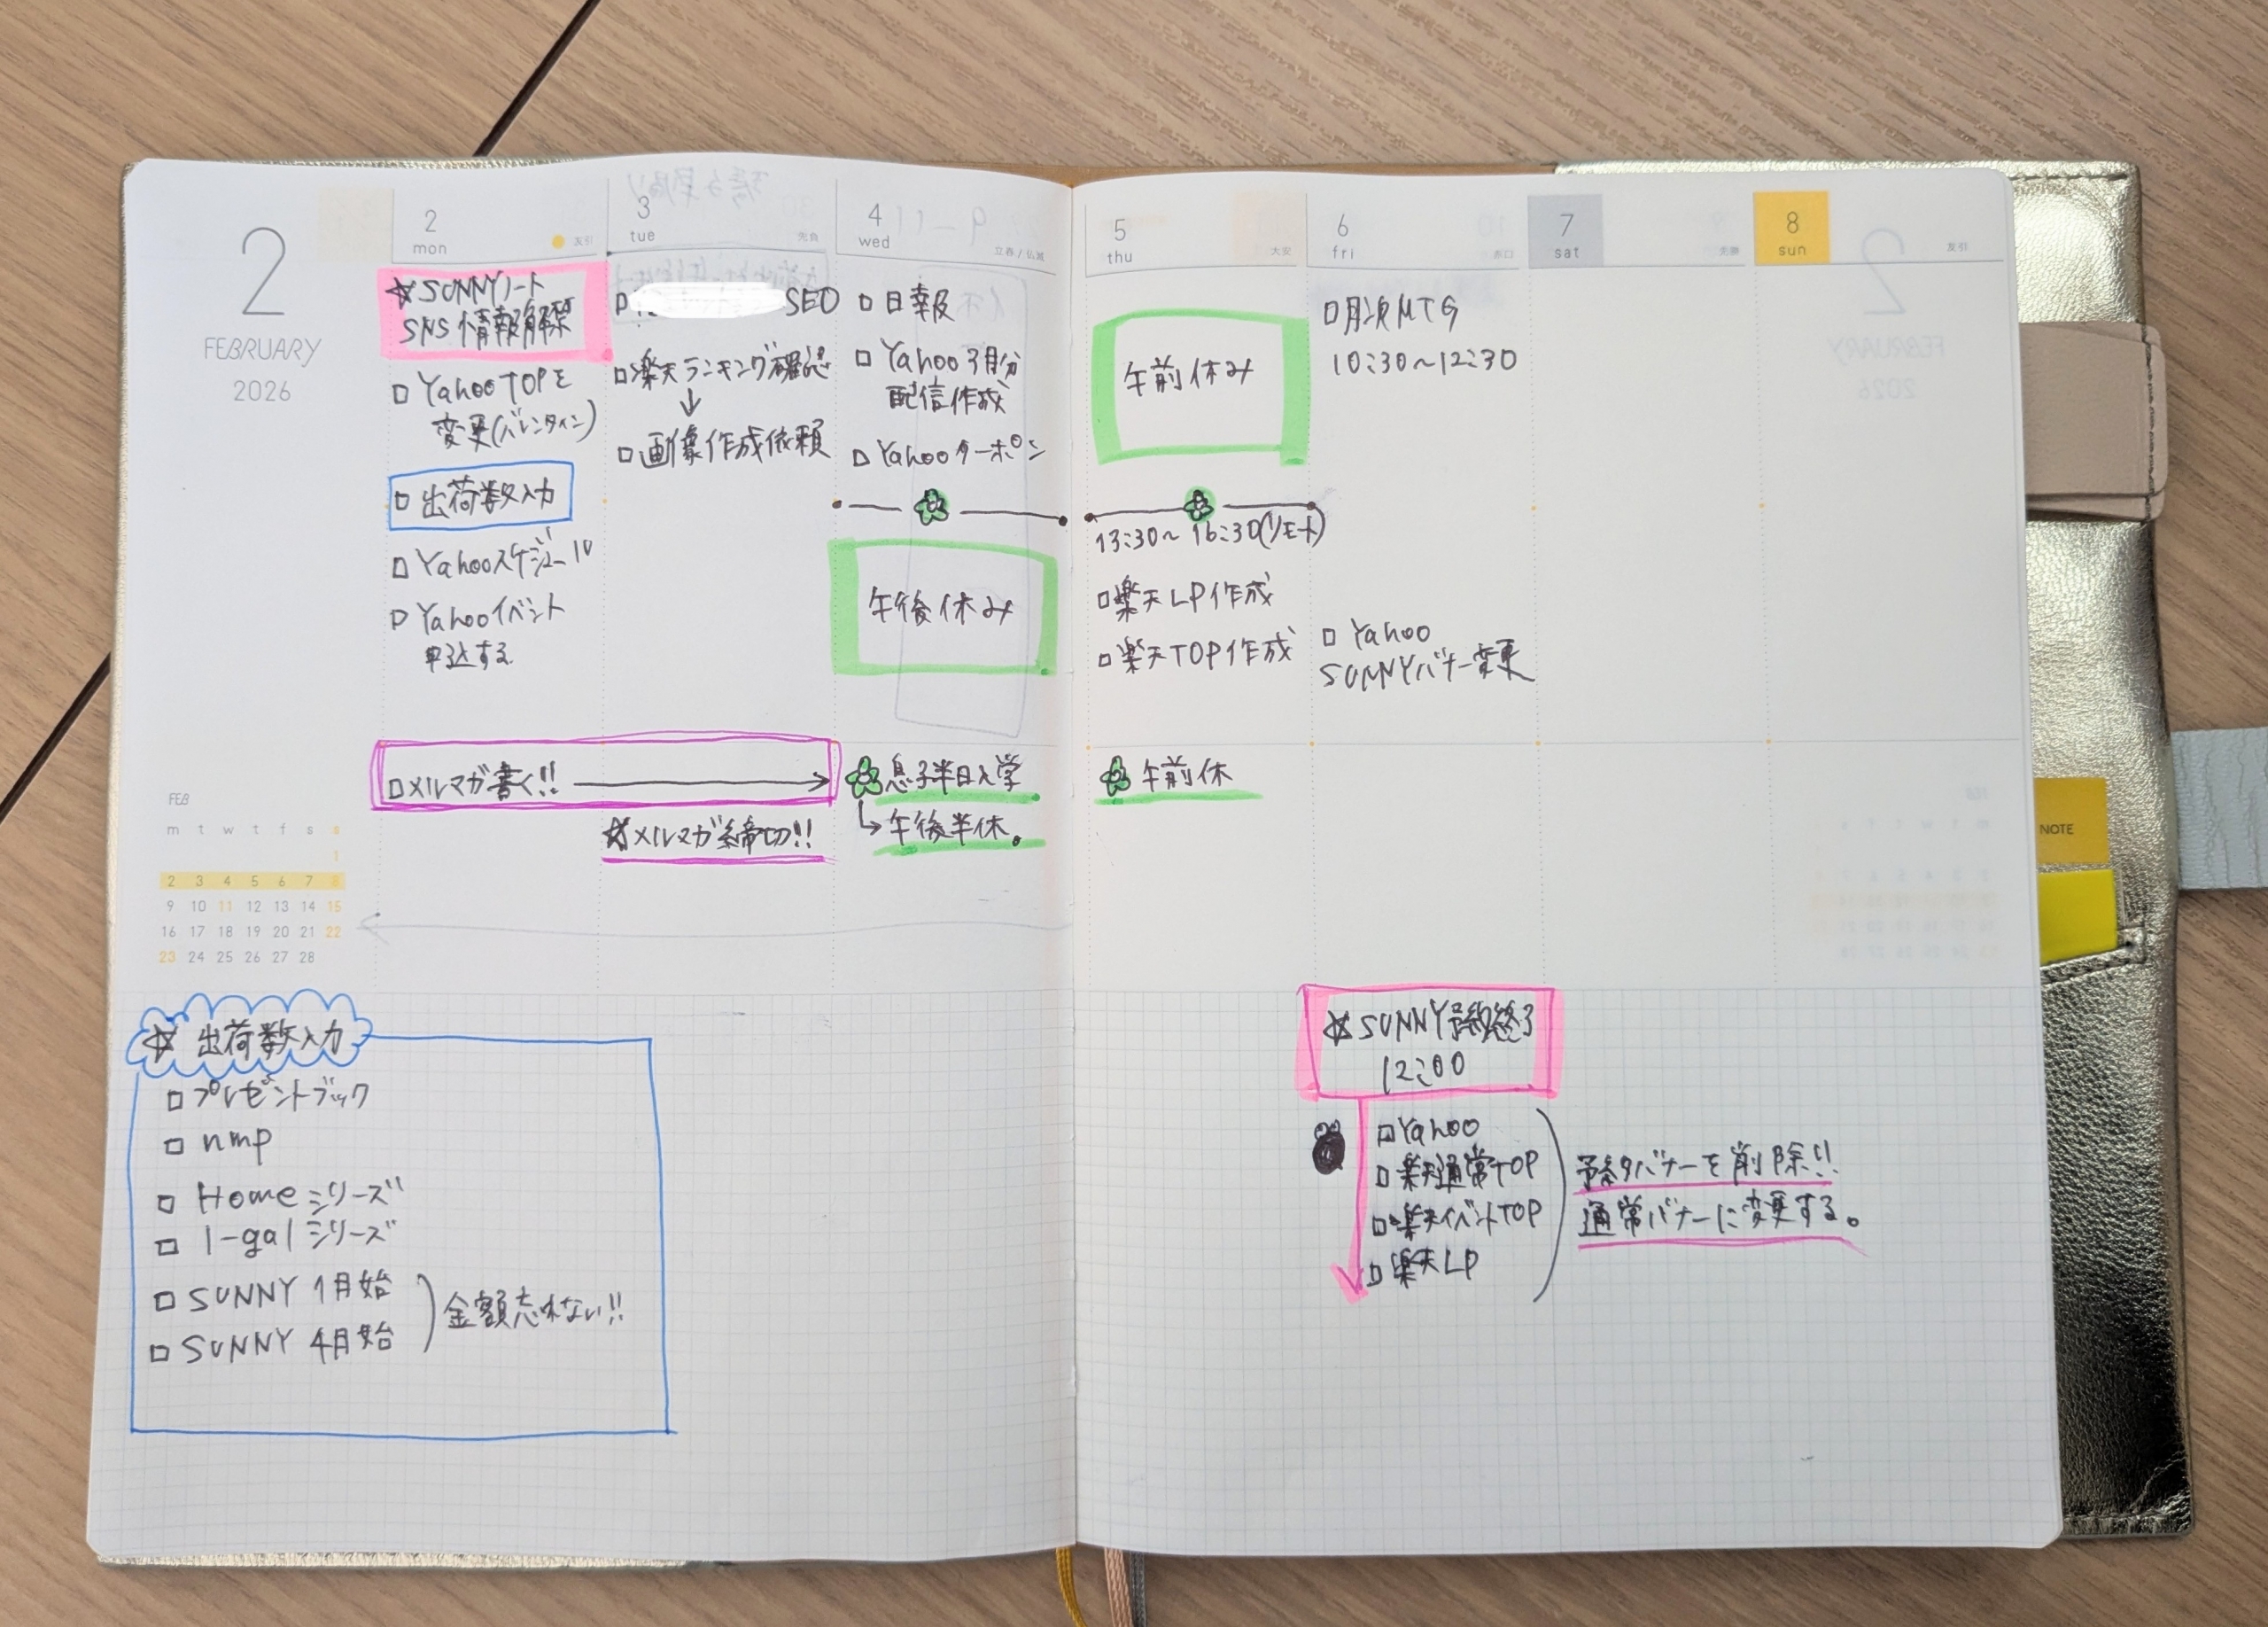 2
FEBRUARY
2026
2
mon
友引
☆SUNNYノート
SNS情報解禁
□ Yahoo TOPを
変更(バレンタイン)
□ 出荷数入力
□ Yahooスケジュール
□ Yahooイベント
申込する
3
tue
先負
□ SEO
□楽天ランキング確認
↓
□画像作成依頼
4
wed
立春/仏滅
□ 日報
□ Yahoo 3月分
配信作成
□ Yahooクーポン
午後休み
□メルマガ書く!! →
☆メルマガ締切!!
息子半日入学
↳午後半休。
5
thu
大安
午前休み
13:30~16:30(リモート)
□楽天LP作成
□楽天TOP作成
午前休
6
fri
赤口
□月次MTG
10:30~12:30
□ Yahoo
SUNNYバナー変更
7
sat
先勝
8
sun
友引
FEB
m t w t f s s
1
2 3 4 5 6 7 8
9 10 11 12 13 14 15
16 17 18 19 20 21 22
23 24 25 26 27 28
☆ 出荷数入力
□ プレゼントブック
□ nmp
□ Homeシリーズ
□ l-galシリーズ
□ SUNNY 1月始
□ SUNNY 4月始
金額忘れない!!
☆SUNNY予約終了
12:00
□Yahoo
□楽天通常TOP
□楽天イベントTOP
□楽天LP
予約バナーを削除!!
通常バナーに変更する。
NOTE